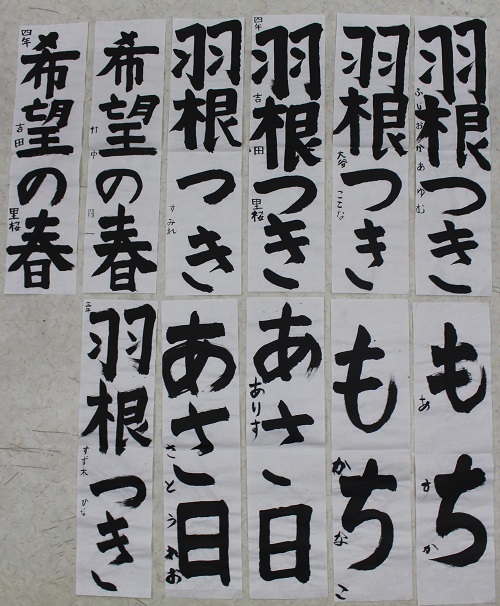 羽根つき
ふじおかあゆむ
羽根つき
大谷ことな
四年
羽根つき
吉田里桜
羽根つき
すみれ
希望の春
四年
希望の春
吉田里桜
もち
あすか
もち
かなこ
あさ日
ありす
あさ日
さとうれお
三年
羽根つき
すず木ひな